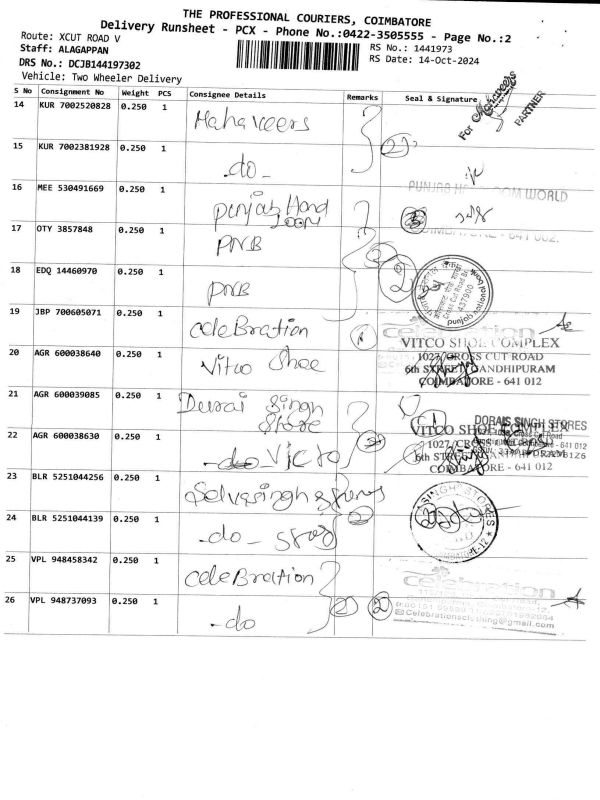 THE PROFESSIONAL COURIERS, COIMBATORE
Delivery Runsheet - PCX - Phone No.:0422-3505555 - Page No.:2
Route: XCUT ROAD V
RS No.: 1441973
Staff: ALAGAPPAN
RS Date: 14-Oct-2024
DRS No.: DCJB144197302
Vehicle: Two Wheeler Delivery
S No Consignment No Weight PCS Consignee Details Remarks Seal & Signature
For Mahaveers PARTNER
14 KUR 7002520828 0.250 1 Mahaveers
15 KUR 7002381928 0.250 1 -do- 2
16 MEE 530491669 0.250 1 punjab Hand Loom
PUNJAB HA OOM WORLD
COIMBATORE - 641 002.
17 OTY 3857848 0.250 1 PNB
18 EDQ 14460970 0.250 1 PNB 2
Cross Cut Road Br.
437900
punjab national bank
19 JBP 700605071 0.250 1 celeBration
celebration
20 AGR 600038640 0.250 1 Vitco Shoe
VITCO SHOE COMPLEX
1027, CROSS CUT ROAD
6th STREET, GANDHIPURAM
COIMBATORE - 641 012
21 AGR 600039085 0.250 1 Durai Singh Store
DORAIS SINGH STORES
22 AGR 600038630 0.250 1 -do Victo
VITCO SHOE COMPLEX
1027, CROSS
COIMBATORE - 641 012
23 BLR 5251044256 0.250 1 Selvasingh stores
24 BLR 5251044139 0.250 1 -do- store
SINGH STORES
COIMBATORE-12
25 VPL 948458342 0.250 1 celeBration
celebration
26 VPL 948737093 0.250 1 -do 2 2
Celebrationsclothing@gmail.com